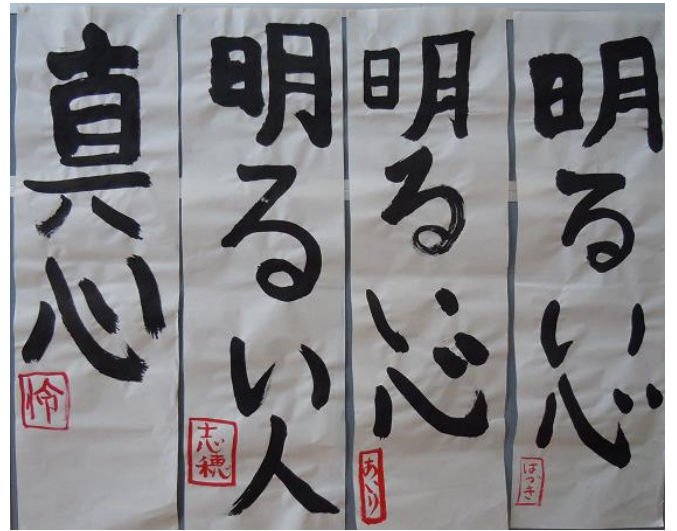 明るい心
ばづき
明るい心
あいり
明るい人
志穂
真心
怜